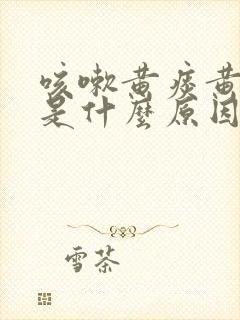 咳嗽黄痰黄
是什麼原因
雪茶